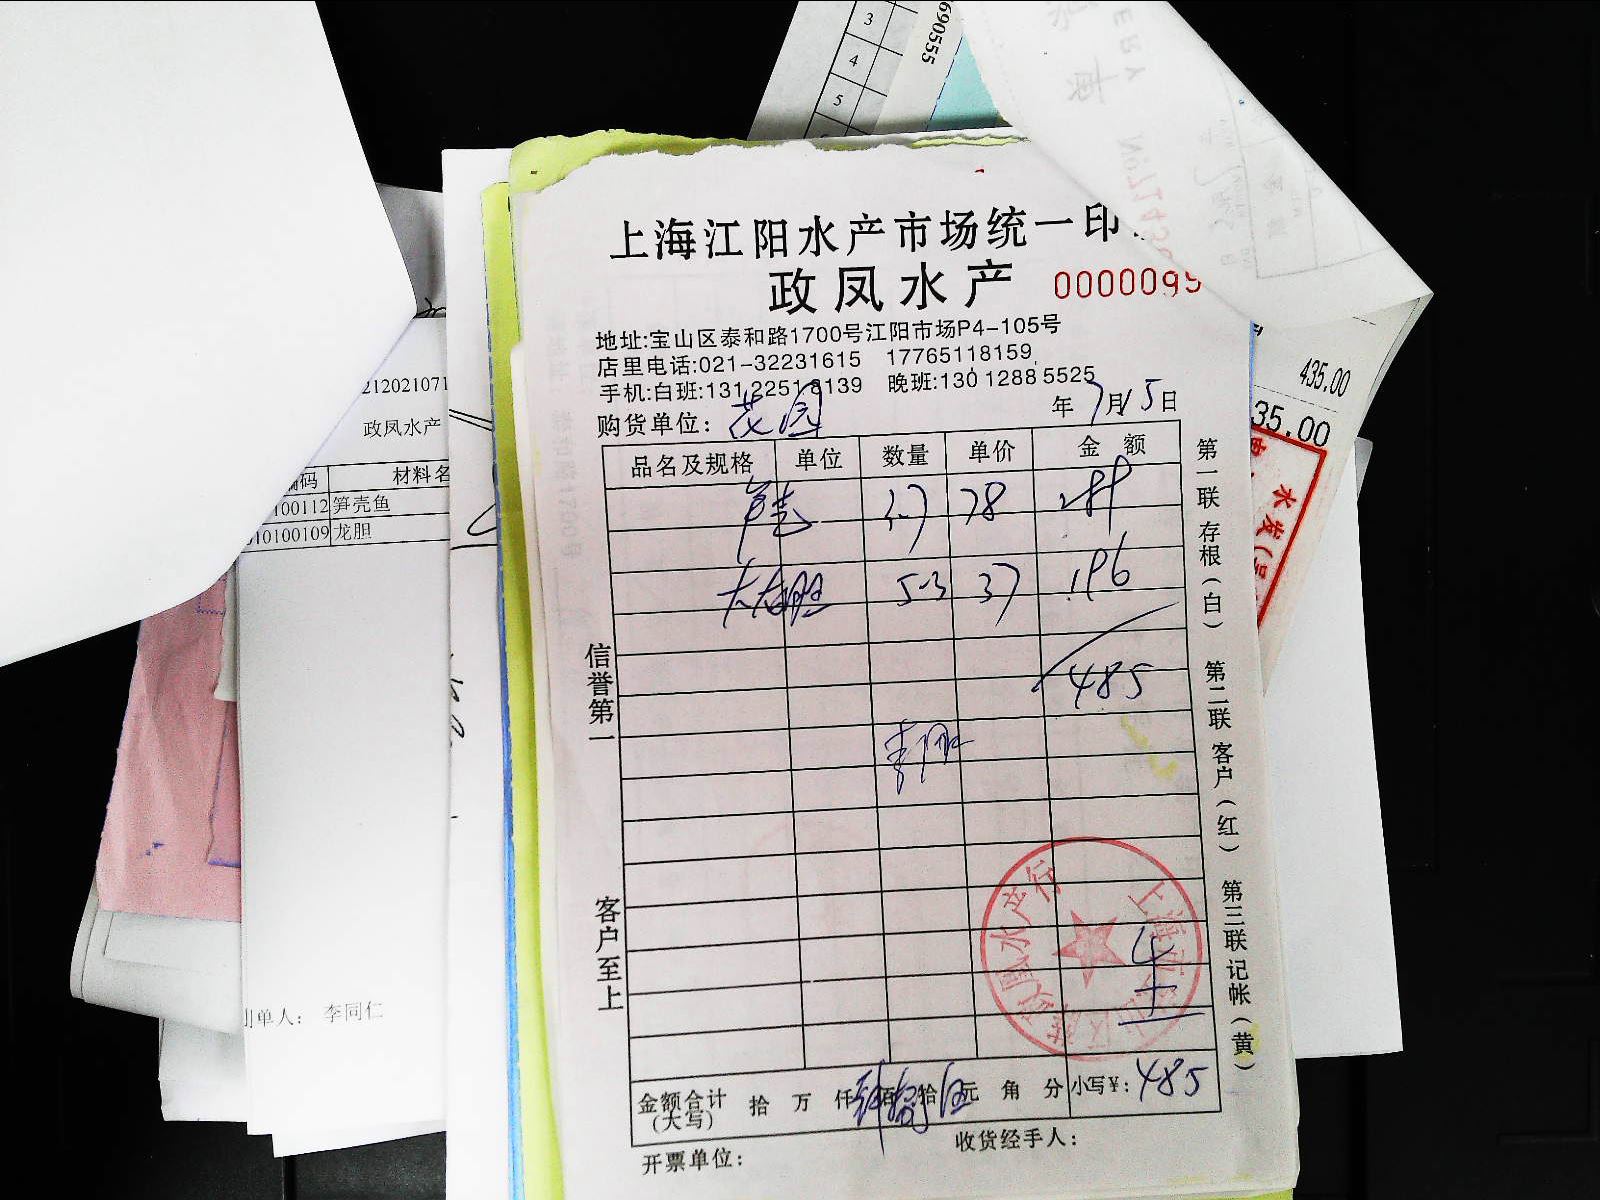 3
4
5
690555
上海江阳水产市场统一印
政凤水产 0000099
地址:宝山区泰和路1700号江阳市场P4-105号
店里电话:021-32231615 17765118159
手机:白班:13122518139 晚班:13012885525
购货单位: 花园 年7月15日
品名及规格 单位 数量 单价 金额
3.7 78 289
大龙胆 5.3 37 196
485
金额合计(大写) 拾 万 仟 佰 拾 元 角 分 小写¥: 485
开票单位: 收货经手人:
信誉第一
客户至上
第一联存根(白)
第二联客户(红)
第三联记帐(黄)
212021071
政凤水产
编码 材料名
100112 笋壳鱼
010100109 龙胆
制单人: 李同仁
435.00
35.00